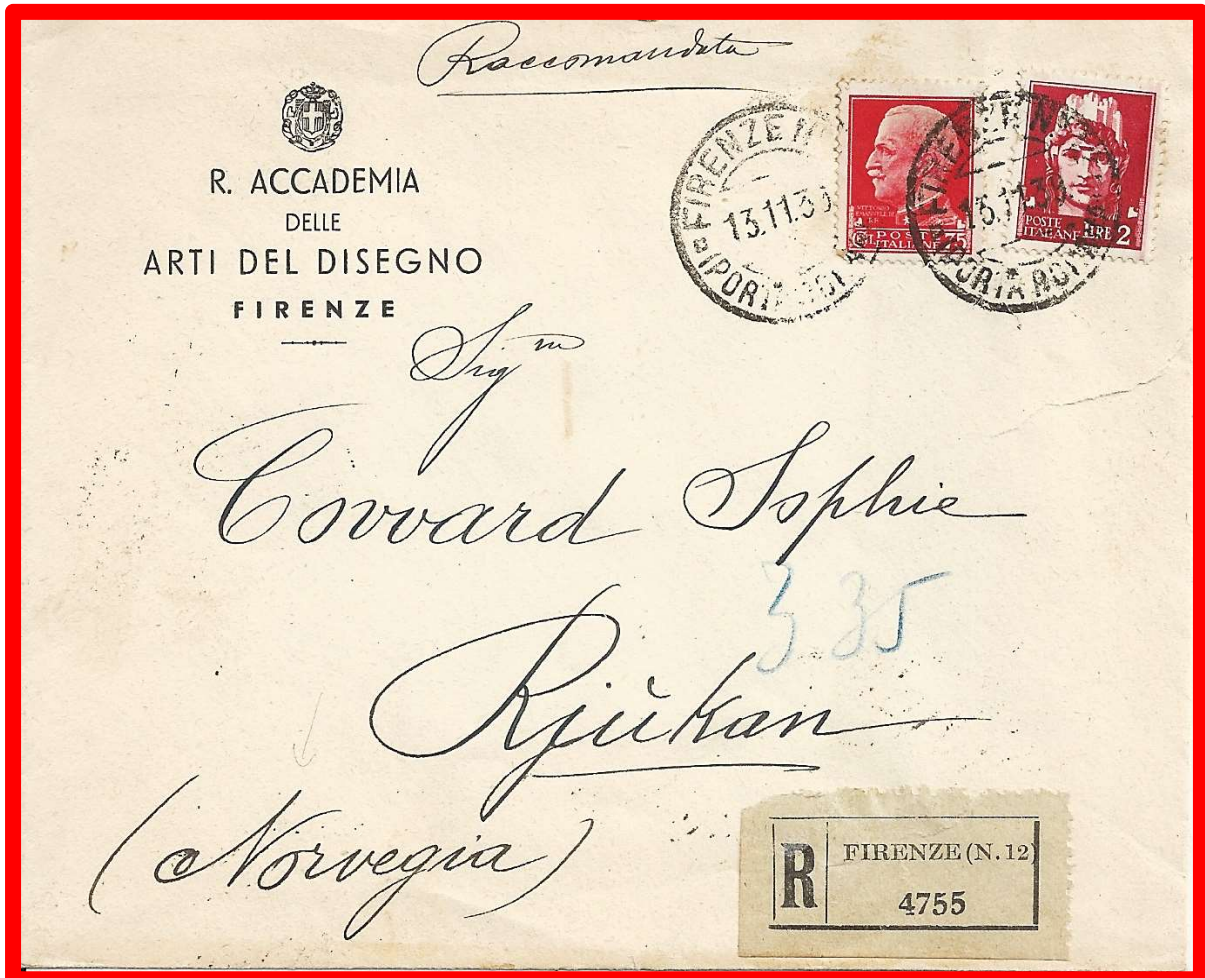 Raccomandata
R. ACCADEMIA
DELLE
ARTI DEL DISEGNO
FIRENZE
FIRENZE
13.11.3
PORTA
VITTORIO
EMANUELE III
POSTE
ITALIANE 75
13.11.3
PORTA
POSTE
ITALIANE LIRE 2
Sig
Covvard Sophie
3 35
Rjùkan
(Norvegia)
R FIRENZE (N. 12)
4755